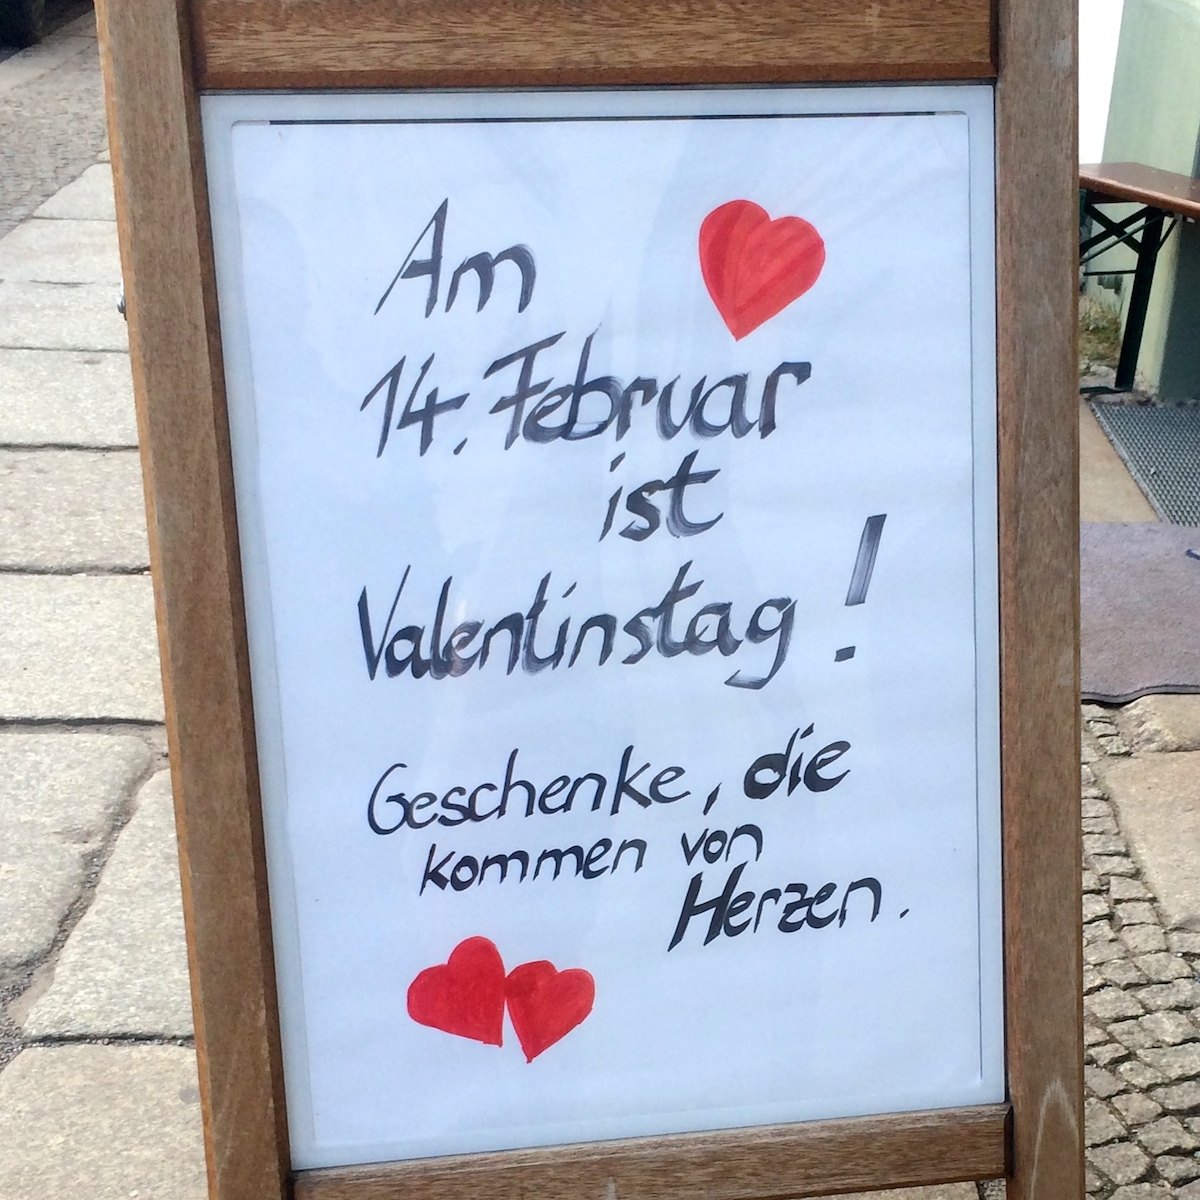 Am
14. Februar
ist
Valentinstag!
Geschenke, die
kommen von
Herzen.